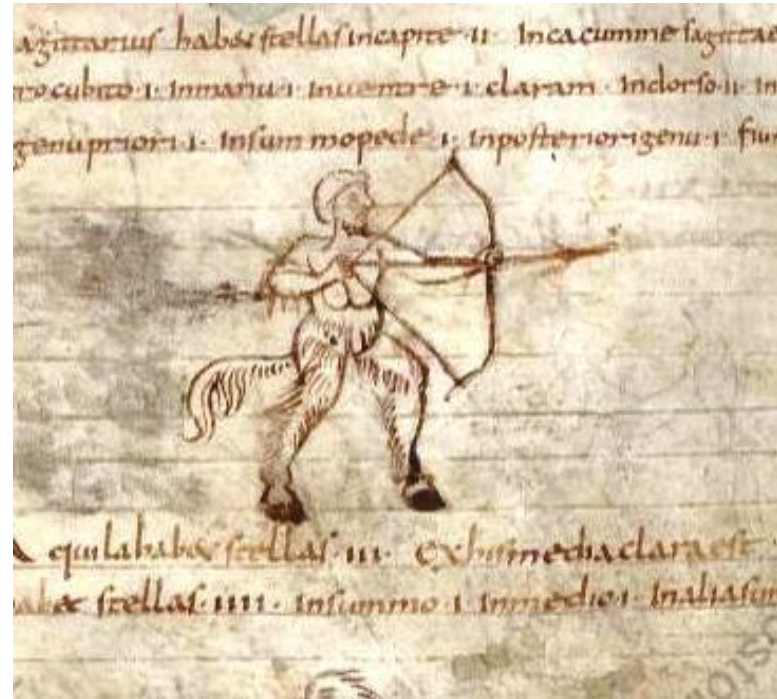 agittarius habet stellas in capite ii · In cacumine sagittae
ro cubito · i · In manu · i · In uentre · i · claram · In dorso · ii · In
genu priori · i · In summo pede · i · In posteriori genu · i · fiun
A quila habet stellas · iii · Ex his media clara est ·
abet stellas · iiii · In summo · i · In medio · i · In alia sum